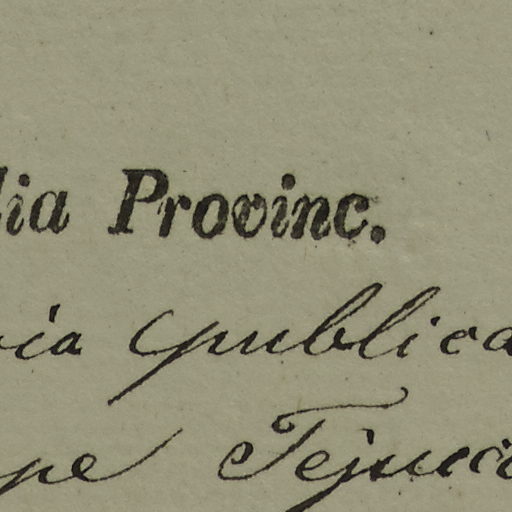 lia Provinc.
via publica
pe Tejuco